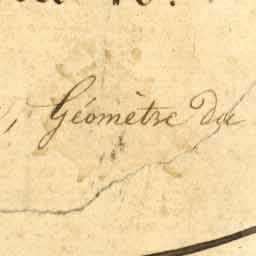 , Géomètre du